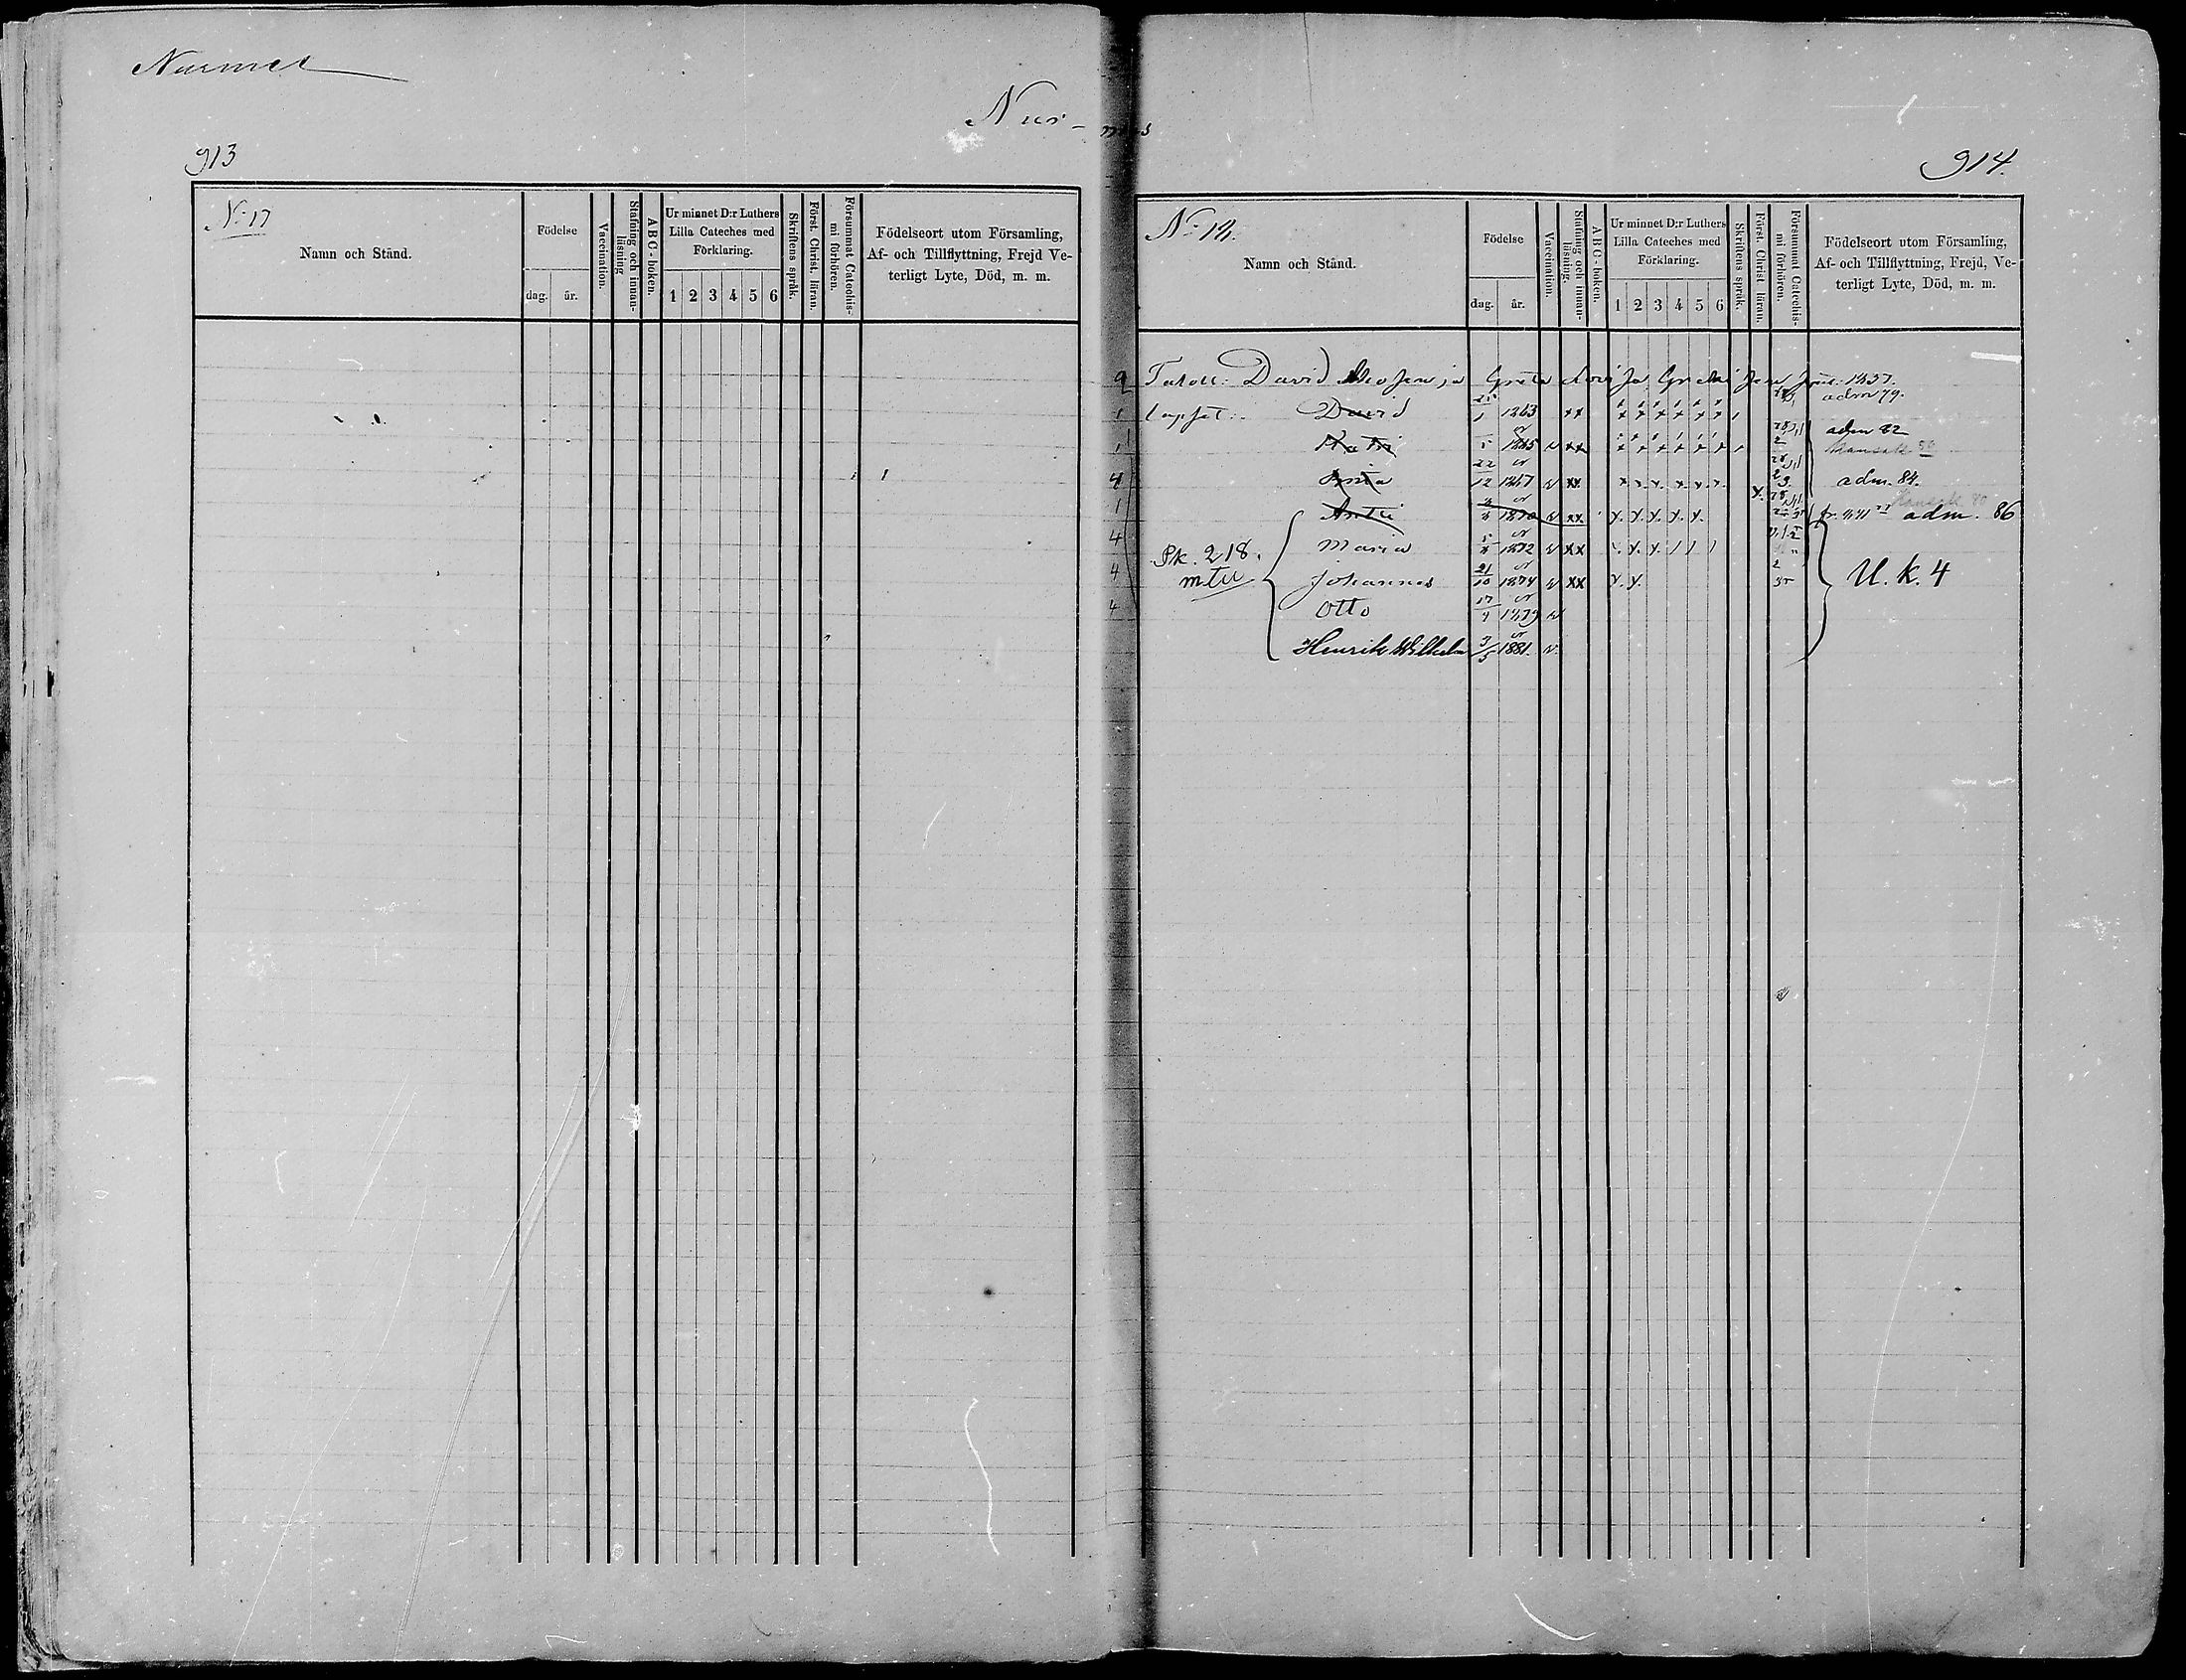 Nurmes
Nur-mes
913
No 17
Namn och Stånd.
Födelse
dag. år.
Vaccination.
Stafning och innan-läsning
ABC-boken.
Ur minnet D:r Luthers Lilla Cateches med Förklaring.
1 2 3 4 5 6
Skriftens språk.
Först. Christ. läran.
Försummat Catechis-mi förhören.
Födelseort utom Församling, Af- och Tillflyttning, Frejd Ve-terligt Lyte, Död, m. m.
914.
No 18.
Namn och Stånd.
Födelse
dag. år.
Vaccination.
Stafning och innan-läsning.
ABC-boken.
Ur minnet D:r Luthers Lilla Cateches med Förklaring.
1 2 3 4 5 6
Skriftens språk.
Först. Christ läran.
Försummat Catechis-mi förhören.
Födelseort utom Församling, Af- och Tillflyttning, Frejd, Ve-terligt Lyte, Död, m. m.
David ja Greta Lovisa 1857.
lapset: David 1 1863 xx x x x x x x adm 79.
Katri 1865 v xx x x x x x x adm 82
4 22/12 1867 v xx x x x x x x adm. 84.
1 Antti 1870 v xx x. x. x. x. x. adm. 86
4 Maria 1872 v xx
Pk. 218.
mtu
4 Johannes 21/10 1874 v xx x. x. U. k. 4
4 Otto 1879 v
Henrik Wilhelm 3/5 1881. v.